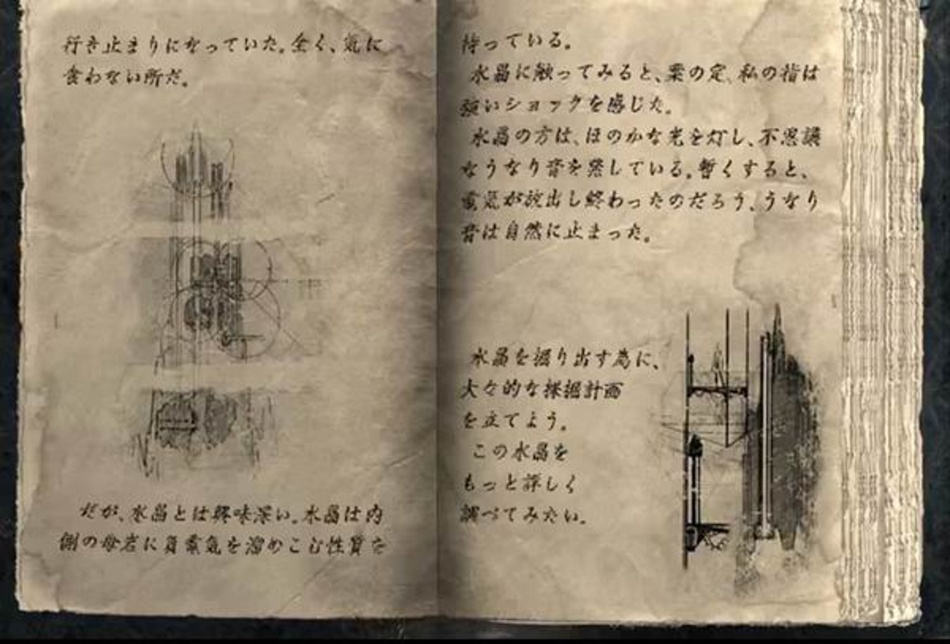 行き止まりになっていた。全く、気に
食わない所だ。
だが、水晶とは興味深い。水晶は内
側の母岩に負電気を溜めこむ性質を
持っている。
水晶に触ってみると、案の定、私の指は
強いショックを感じた。
水晶の方は、ほのかな光を灯し、不思議
なうなり音を発している。暫くすると、
電気が放出し終わったのだろう、うなり
音は自然に止まった。
水晶を掘り出す為に、
大々的な採掘計画
を立てよう。
この水晶を
もっと詳しく
調べてみたい。